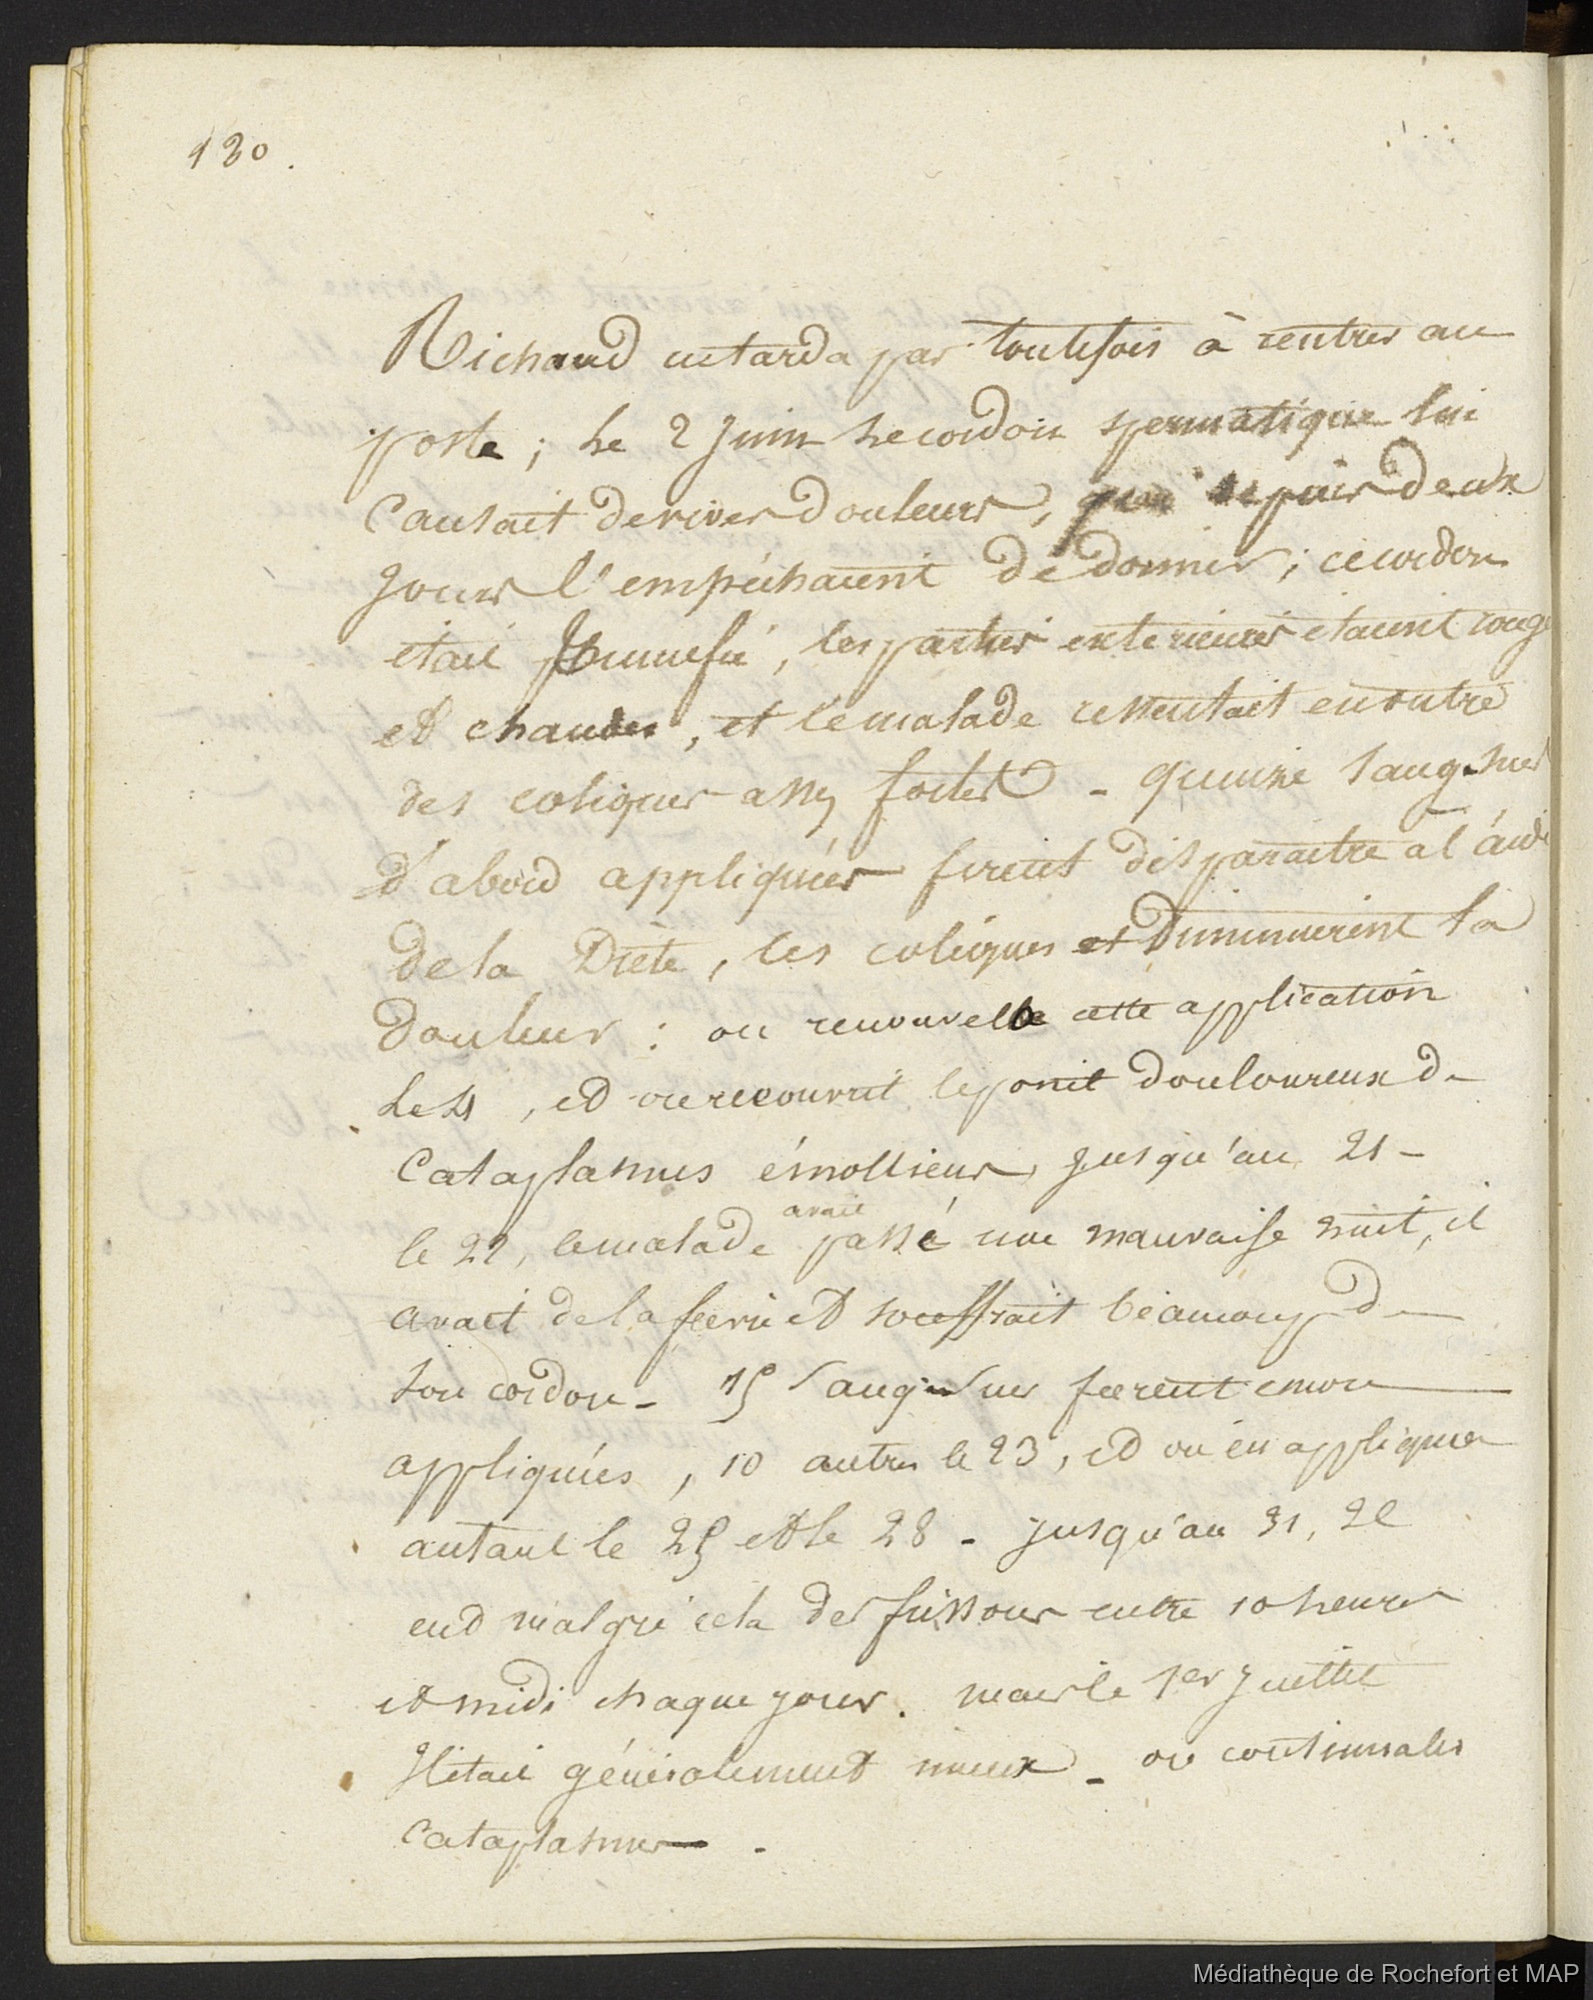 180.
Richaud ne tarda pas toutefois à rentrer au
poste ; le 2 Juin le cordon spermatique lui
Causait de vives douleurs, qui depuis deux
Jours l'empéchaient de dormir ; ce cordon
était tumefié, les parties exterieures étaient roug
et chaudes, et le malade ressentait en outre
des coliques assez fortes - quinze sang-sues
d'abord appliquées firent disparaitre a l'aid
de la Diète, les coliques et Diminuerent la
Douleur : on renouvella cette application
le 4, et on recouvrit le point douloureux de
Cataplasmes émolliens, jusqu'au 21 -
le 22, le malade avait passé une mauvaise nuit, il
avait de la fievre et souffrait beaucoup de
son cordon - 15 sang-sues furent encore
appliquées, 10 autres le 23, et on en appliqua
autant le 25 et le 28 - jusqu'au 31, Il
eut malgré cela des frissons entre 10 heures
et midi chaque jour. mais le 1er Juillet
Il était généralement mieux - on continua les
Cataplasmes - .
Médiathèque de Rochefort et MAP